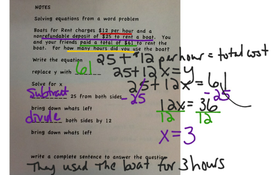 NOTES
Solving equations from a word problem
Boats for Rent charges $12 per hour and a
nonrefundable deposit of $25 to rent a boat. You
and your friends paid a total of $61 to rent the
boat. For how many hours did you use the boat?
Write the equation 25 + 12 per hour = total cost
25+12x=y
replace y with 61 25+12x=61
Solve for x
Subtract 25 from both sides -25 -25
bring down whats left 12x = 36
divide both sides by 12 12 12
bring down whats left x=3
write a complete sentence to answer the question
They used the boat for 3 hours